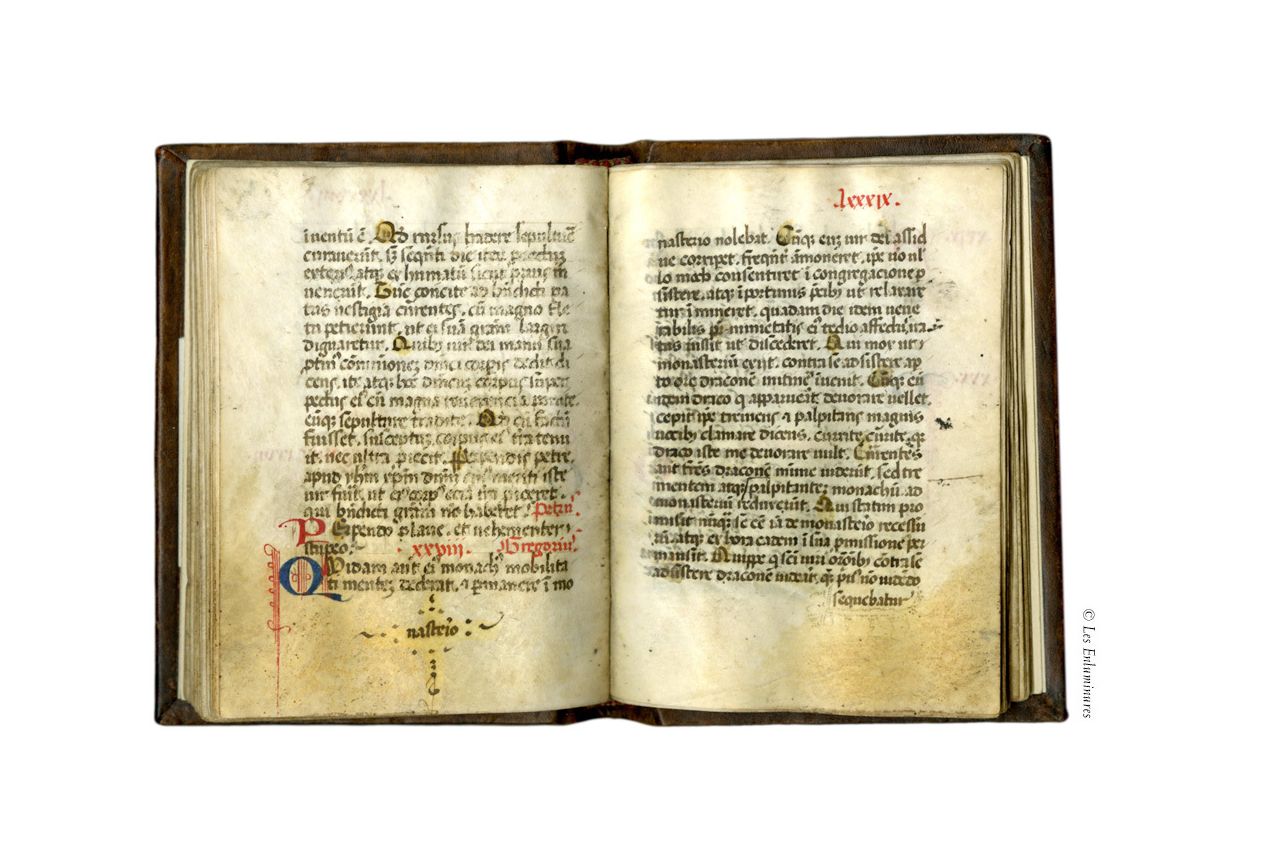 inventū ē. Ad rursus tradere sepulturē
curaverūt. sȝ seqn̄ti die iteȝ proiectuȝ
exterius atqȝ et humatū sicut prius in
venerūt. Tūc concite ad bn̄dicti pa
tris vestigia curentes, cū magno fle
tu petierunt, ut ei suā grām largiri
dignaretur. Quibus vir dei manu sua
ptin' cōmunionez dn̄ici corpis dedit di
cens, ite atqȝ hoc dn̄icuȝ corpus super
pectus eius cū magna reverencia ponite.
eūqȝ sepulture tradite. Qd cū factū
fuisset. susceptuȝ corpus eius terra tenu
it. nec ultra proiecit. Perpendis petre,
apud yhm xpm dnm cuius meriti iste
vir fuit, ut eius corpus ecia terra proiceret.
qui bn̄dicti grām nō haberet. Petrus
Perpendo plane. et vehementer
stupeo. . xxviii. Gregorius
Quidam aut eius monachus mobilita
ti mentez dederat. et permanere ī mo
nasterio
.lxxxix.
nasterio nolebat. Cūqȝ euȝ vir dei assid
ue corripet. freqnt' āmoneret. ipe vo nl'
lo modo consentiret ī congregacione p
sistere. atqȝ īportunis precibȝ ut relaxare
tur īmineret. quadam die idem vene
rabilis pr nimietatis eius tedio affectus, ira
tus iussit ut discederet. Qui mox ut
monasteriū exiit. contra se adsistere ap
to ore draconē initinere īvenit. Cūqȝ eū
eidem draco q apparuerat devorare vellet.
cepit ipe tremens et palpitans magnis
vocibȝ clamare dicens. currite, currite. qȝ
draco iste me devorare vult. Currentes
aut frēs draconē mīme viderūt. sed tre
mentem atqȝ palpitanteȝ monachū ad
monasteriū reduxerūt. Qui statim pro
misit nūqȝ se eē iā de monasterio recessu
rū. atqȝ ex hora eadem ī sua pmissione per
mansit. Quippe q sci viri oronibȝ contra se
adsistere draconē viderat. quē prius nō videndo
sequebatur
© Les Enluminures